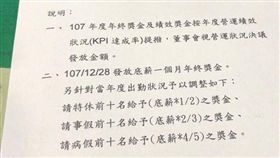 說明：
一、107 年度年終獎金及績效獎金按年度營運績效
狀況(KPI 達成率)提撥，董事會視營運狀況決議
發放金額。
二、107/12/28 發放底薪一個月年終獎金。
另針對當年度出勤狀況予以調整如下：
請特休前十名給予(底薪*1/2)之獎金。
請事假前十名給予(底薪*2/3)之獎金。
請病假前十名給予(底薪*4/5)之獎金。